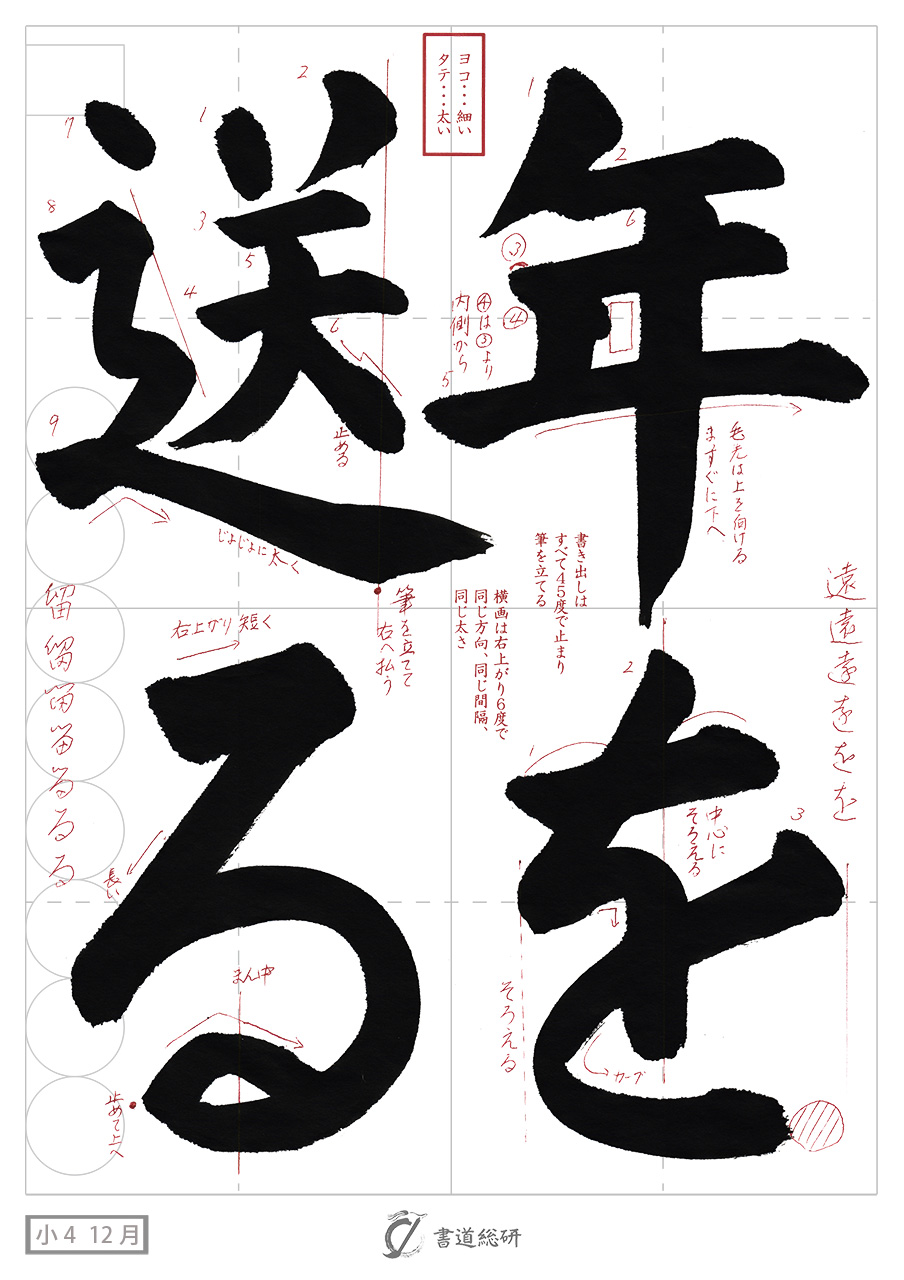 年を
送る
ヨコ・・・細い
タテ・・・太い
1
2
③
④
5
6
④は③より
内側から
毛先は上を向ける
ますぐに下へ
書き出しは
すべて45度で止まり
筆を立てる
横画は右上がり6度で
同じ方向、同じ間隔、
同じ太さ
1
2
3
中心に
そろえる
そろえる
カーブ
遠遠遠をを
1
2
3
4
5
6
7
8
9
止める
じょじょに太く
筆を立てて
右へ払う
右上がり短く
長い
まん中
止めて上へ
留留留留るるる
小4 12月
書道総研